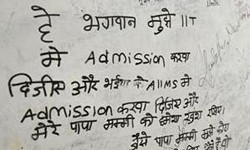 हे भगवान मुझे IIT
मे Admission करवा
दिजीए और भईया को AIIMS मे
Admission करवा दिजिए और
मेरे पापा मम्मी को हमेशा खुश रखिए।
पापा मम्मी